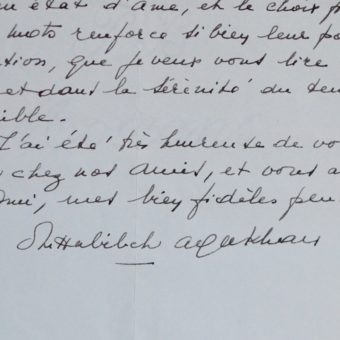 un état d'âme, et le choix
mots renforce si bien leur
tion, que je veux vous lire
et dans la sérénité du
ible.
J'ai été très heureuse de
chez nos amis, et vous
mes bien fidèles